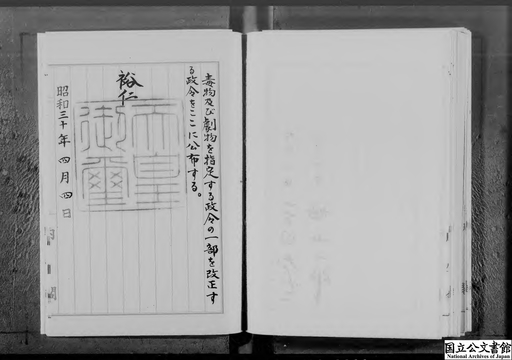 毒物及び劇物を指定する政令の一部を改正す
る政令をここに公布する。
裕仁
天皇
御璽
昭和三十年四月四日
国立公文書館
National Archives of Japan